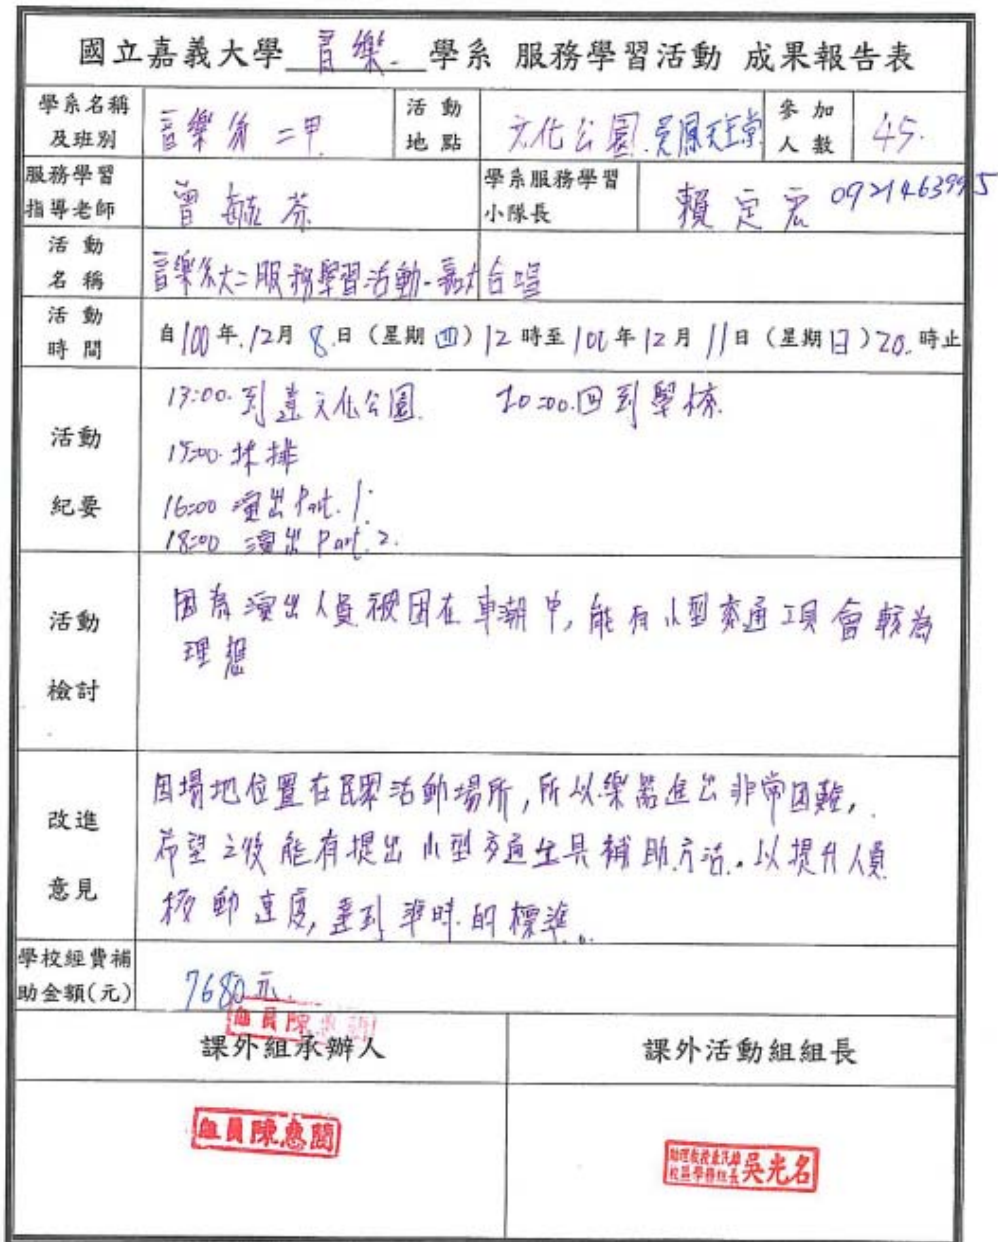 國立嘉義大學 音樂 學系 服務學習活動 成果報告表
學系名稱及班別 音樂系 二甲 活動地點 文化公園.吳鳳天主堂 參加人數 45.
服務學習指導老師 曾毓芬 學系服務學習小隊長 賴定宏 0921463995
活動名稱 音樂系大二服務學習活動-嘉大台喧
活動時間 自100年.12月8日(星期四)12時至100年12月11日(星期日)20.時止
活動紀要
13:00.到達文化公園. 20:00.回到學校.
15:00.抹排
16:00 演出Part.1.
18:00 演出Part.2.
活動檢討
因為演出人員被困在車潮中,能有小型交通工具會較為
理想
改進意見
因場地位置在民眾活動場所,所以樂器進出非常困難,
希望之後能有提出小型交通工具補助方法.以提升人員
移動速度,達到準時的標準.
學校經費補助金額(元) 7680元.
組員陳惠
課外組承辦人 課外活動組組長
組員陳惠蘭
助理教授兼民雄
校區學務組長 吳光名